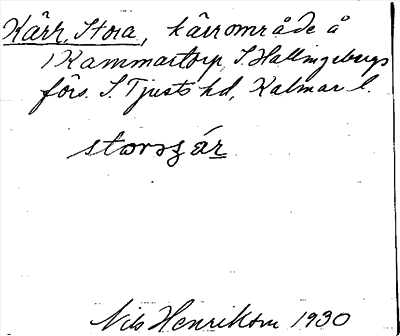 Kärr, Stora, kärrområde å
Kammartorp, S. Hallingebergs
förs. S Tjusts hd, Kalmar l.
Nils Henrikson 1930